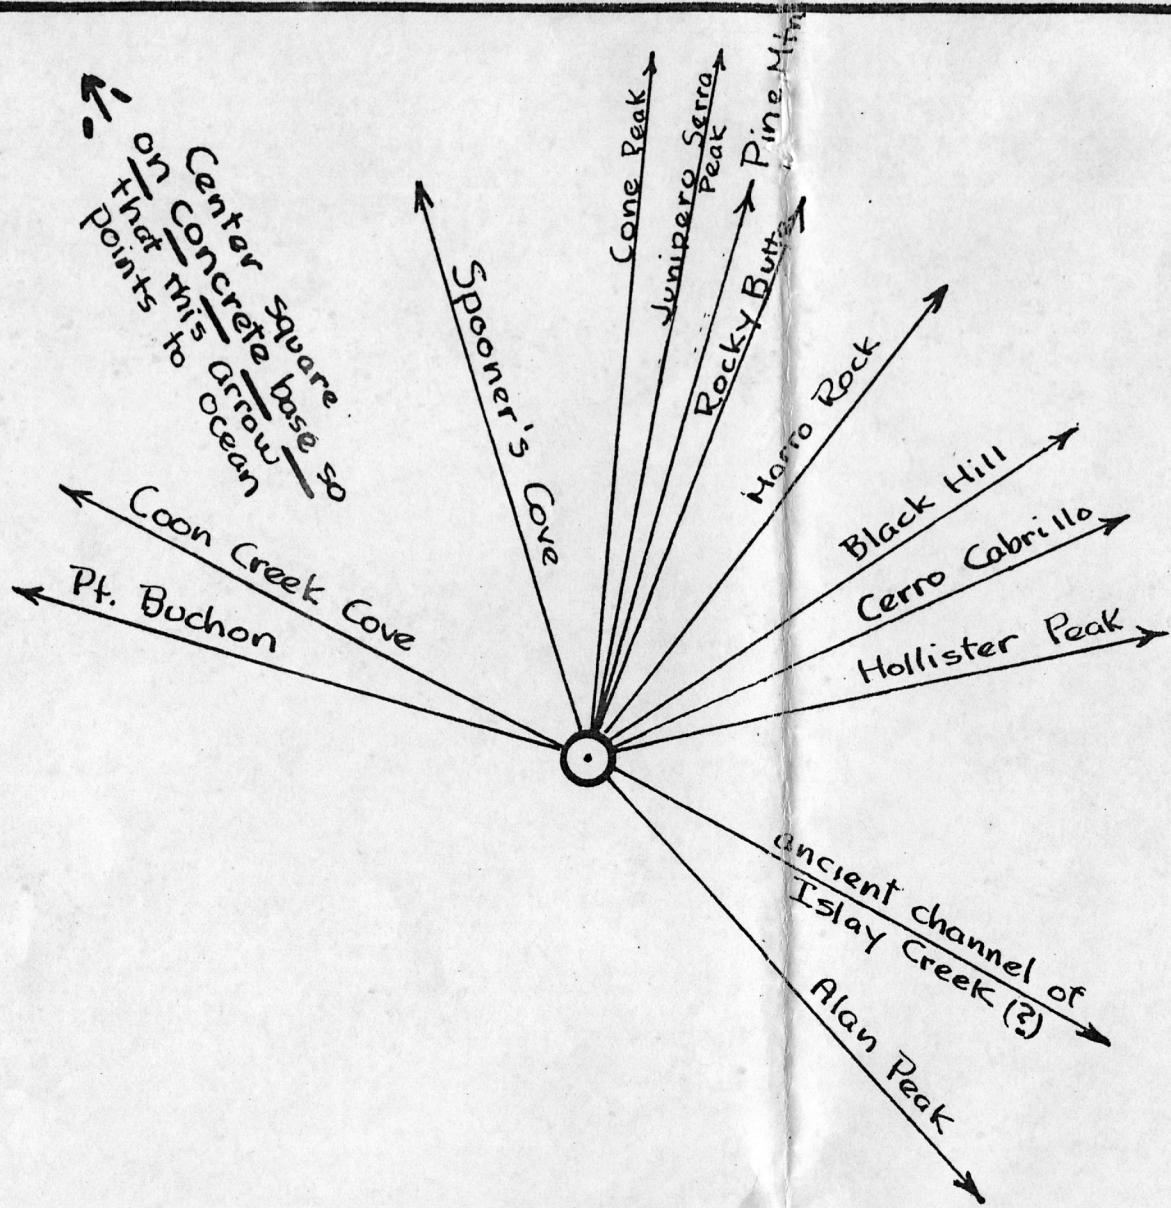 Center square
on concrete base so
that this arrow
points to ocean
Coon Creek Cove
Pt. Buchon
Spooner's Cove
Cone Peak
Junipero Serra
Peak
Pine Mtn
Rocky Butte
Morro Rock
Black Hill
Cerro Cabrillo
Hollister Peak
ancient channel of
Islay Creek (?)
Alan Peak